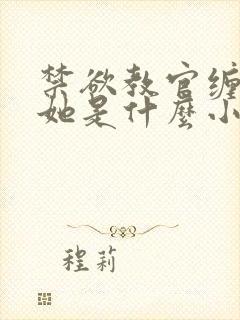 禁欲教官缠
她是什麼小
程莉